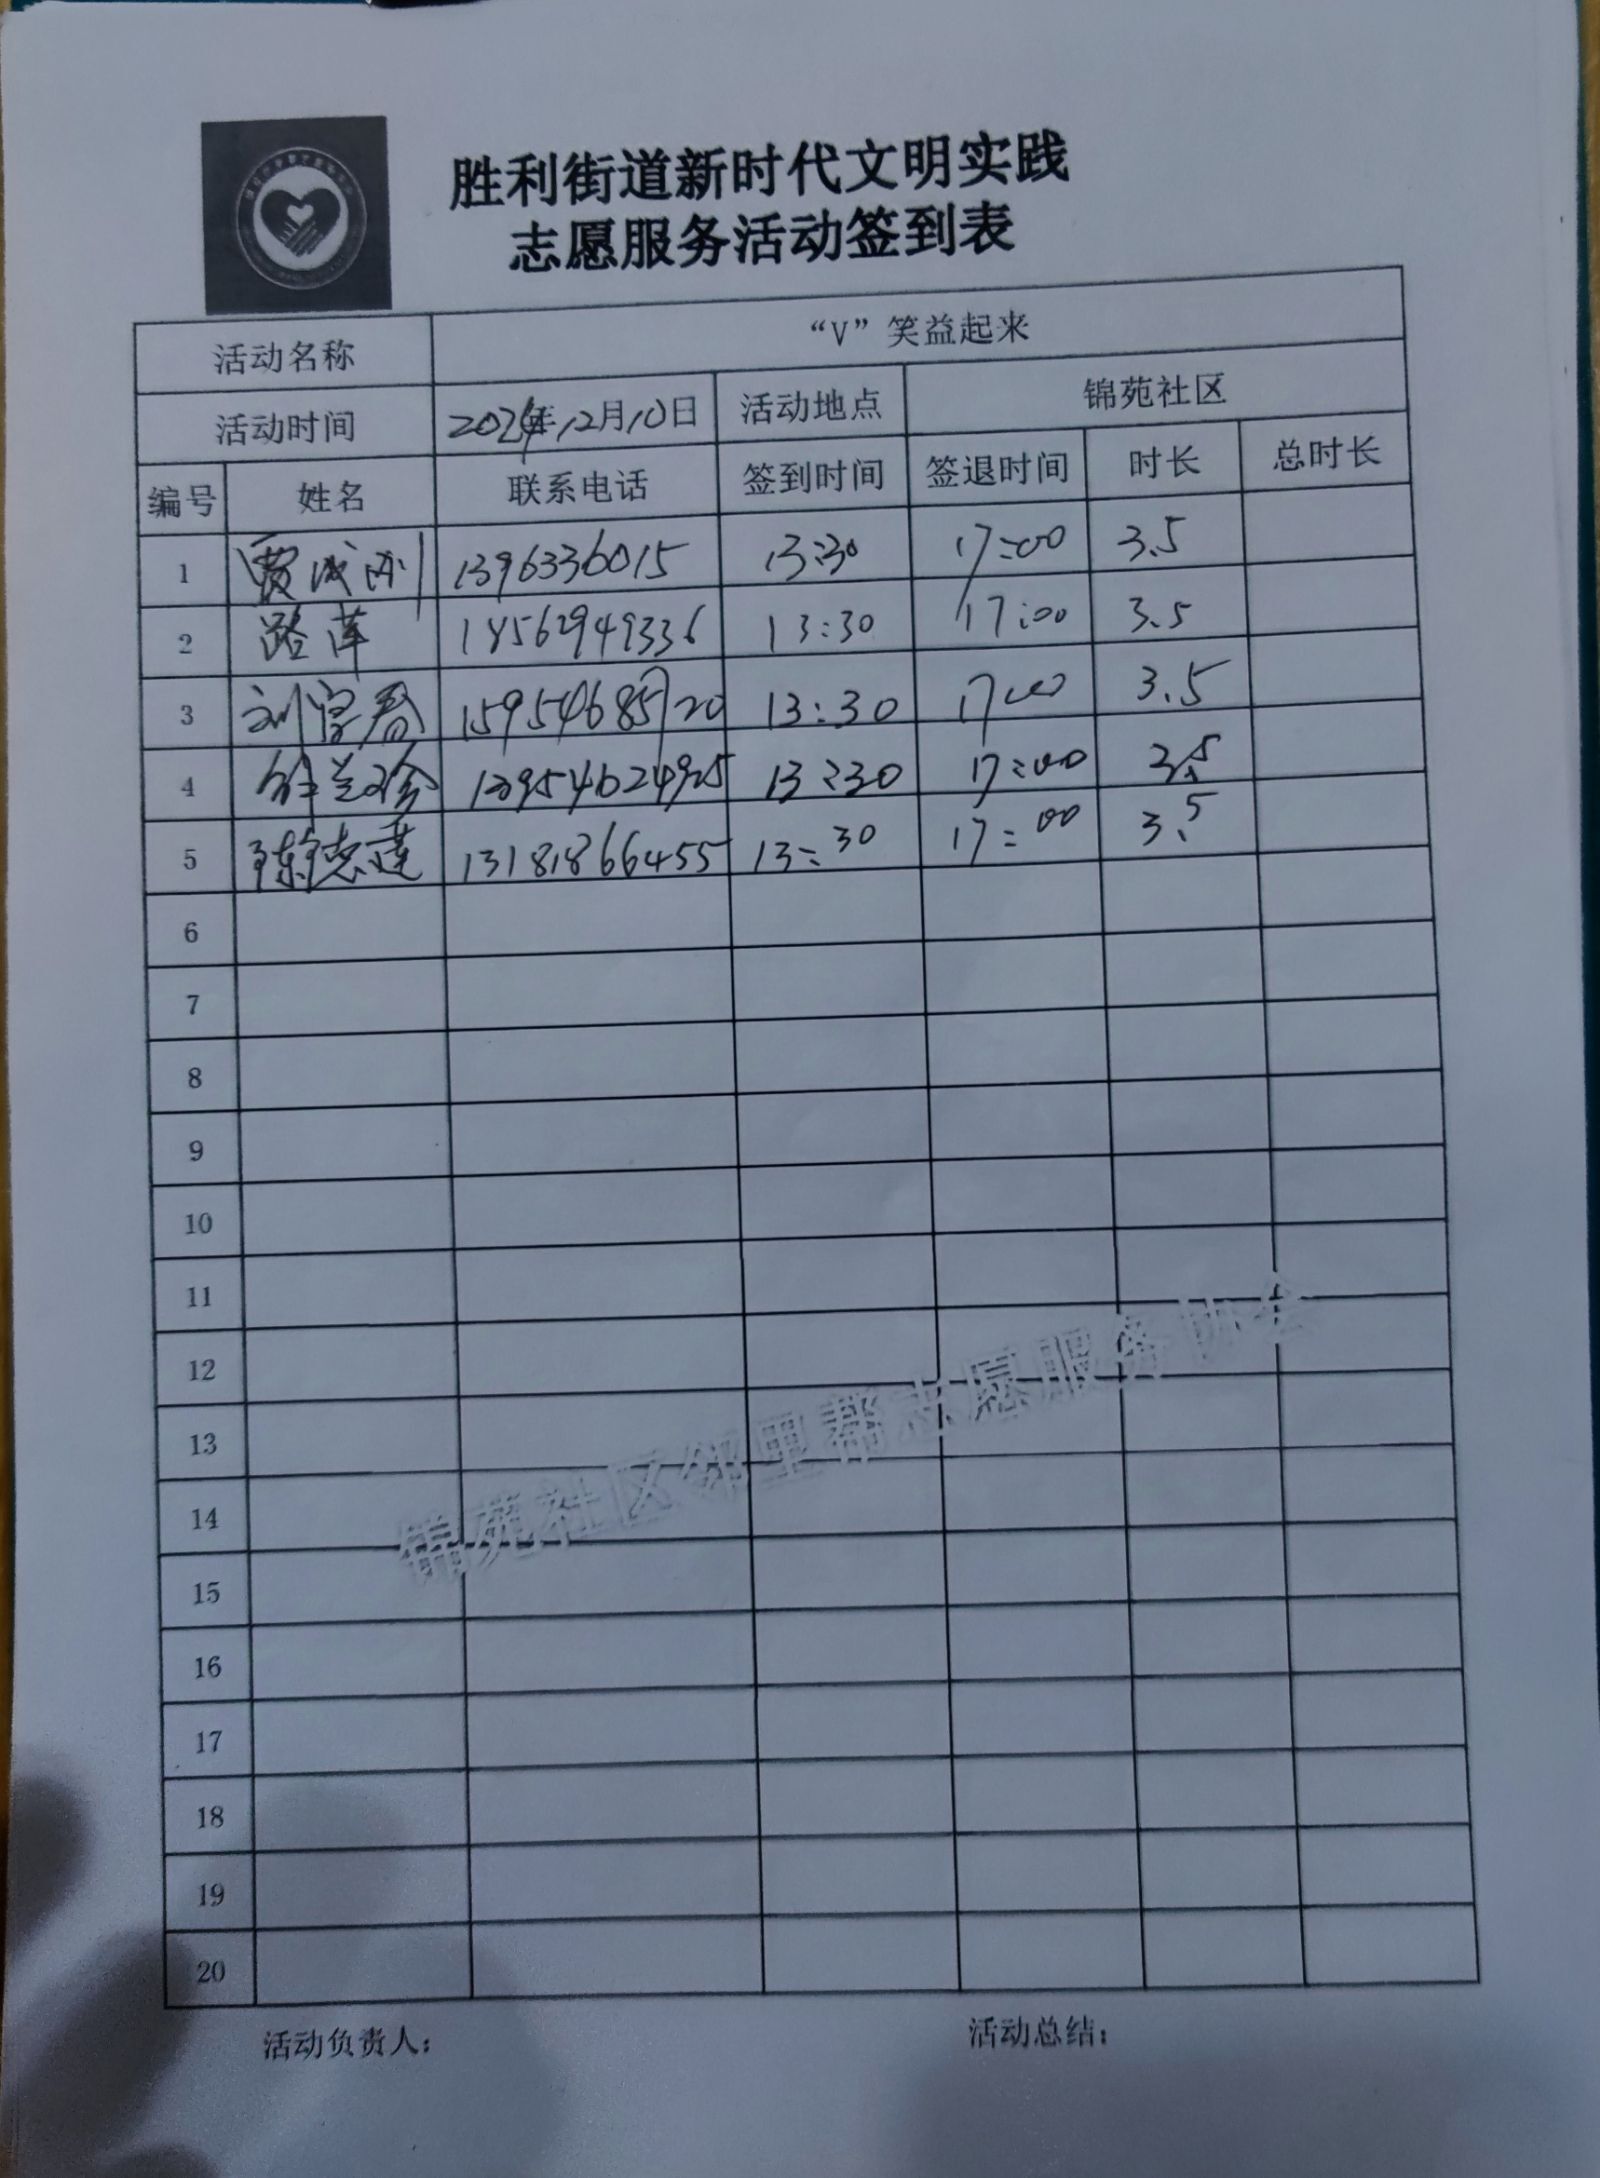 胜利街道新时代文明实践
志愿服务活动签到表
活动名称 “V”笑益起来
活动时间 2024年12月10日 活动地点 锦苑社区
编号 姓名 联系电话 签到时间 签退时间 时长 总时长
1 贾成刚 1396336015 13:30 17:00 3.5
2 路萍 18562949336 13:30 17:00 3.5
3 15954685720 13:30 17:00 3.5
4 13954624925 13:30 17:00 3.5
5 陈德莲 13181866455 13:30 17:00 3.5
6
7
8
9
10
11
12
13
14
15
16
17
18
19
20
锦苑社区邻里帮志愿服务协会
活动负责人： 活动总结：